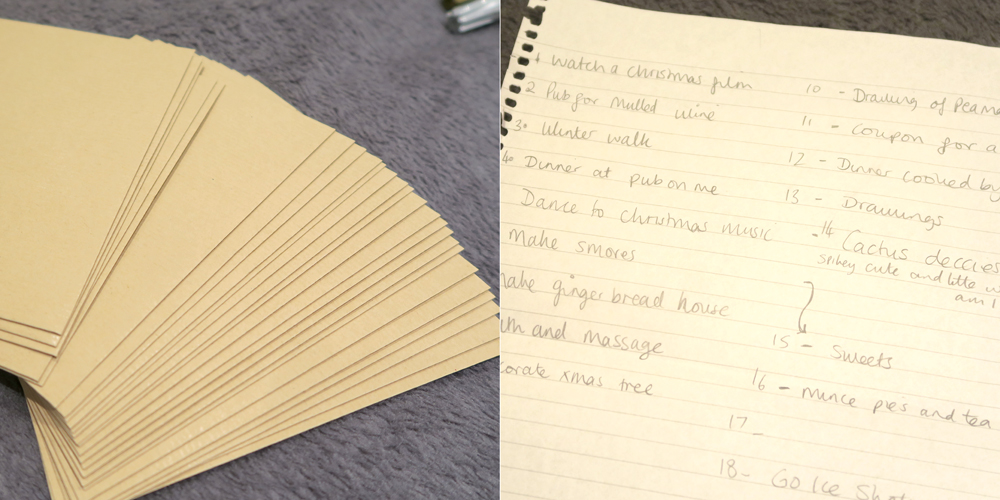 1 watch a christmas film
2 Pub for mulled wine
3. Winter walk
4. Dinner at pub on me
Dance to christmas music
make smores
make gingerbread house
and massage
xmas tree
10 - Drawing of
11 - coupon for a
12 - Dinner cooked by
13 - Drawings
14 Cactus deccies
spikey cute and little
am I
15 - Sweets
16 - mince pies and tea
17 -
18 - Go Ice